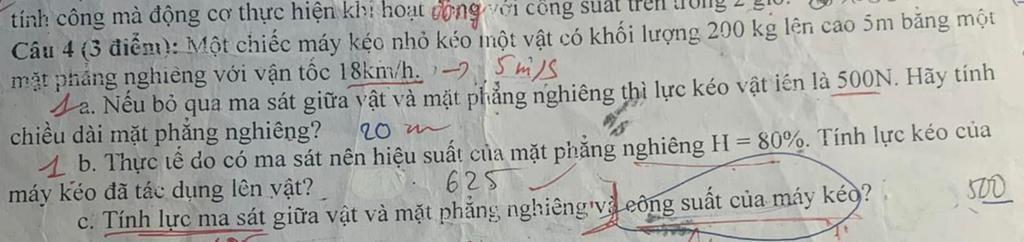 tính công mà động cơ thực hiện khi hoạt động với công suất trên trong 2 giờ.
Câu 4 (3 điểm): Một chiếc máy kéo nhỏ kéo một vật có khối lượng 200 kg lên cao 5m bằng một
mặt phẳng nghiêng với vận tốc 18km/h. → 5 m/s
1 a. Nếu bỏ qua ma sát giữa vật và mặt phẳng nghiêng thì lực kéo vật lên là 500N. Hãy tính
chiều dài mặt phẳng nghiêng? 20 m
1 b. Thực tế do có ma sát nên hiệu suất của mặt phẳng nghiêng H = 80%. Tính lực kéo của
máy kéo đã tác dụng lên vật? 625
c. Tính lực ma sát giữa vật và mặt phẳng nghiêng và công suất của máy kéo? 500